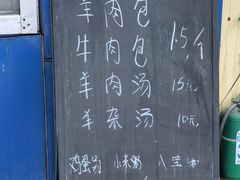 羊肉包
牛肉包 1.5/个
羊肉汤 15元
羊杂汤 10元
鸡蛋汤 小米粥 八宝粥